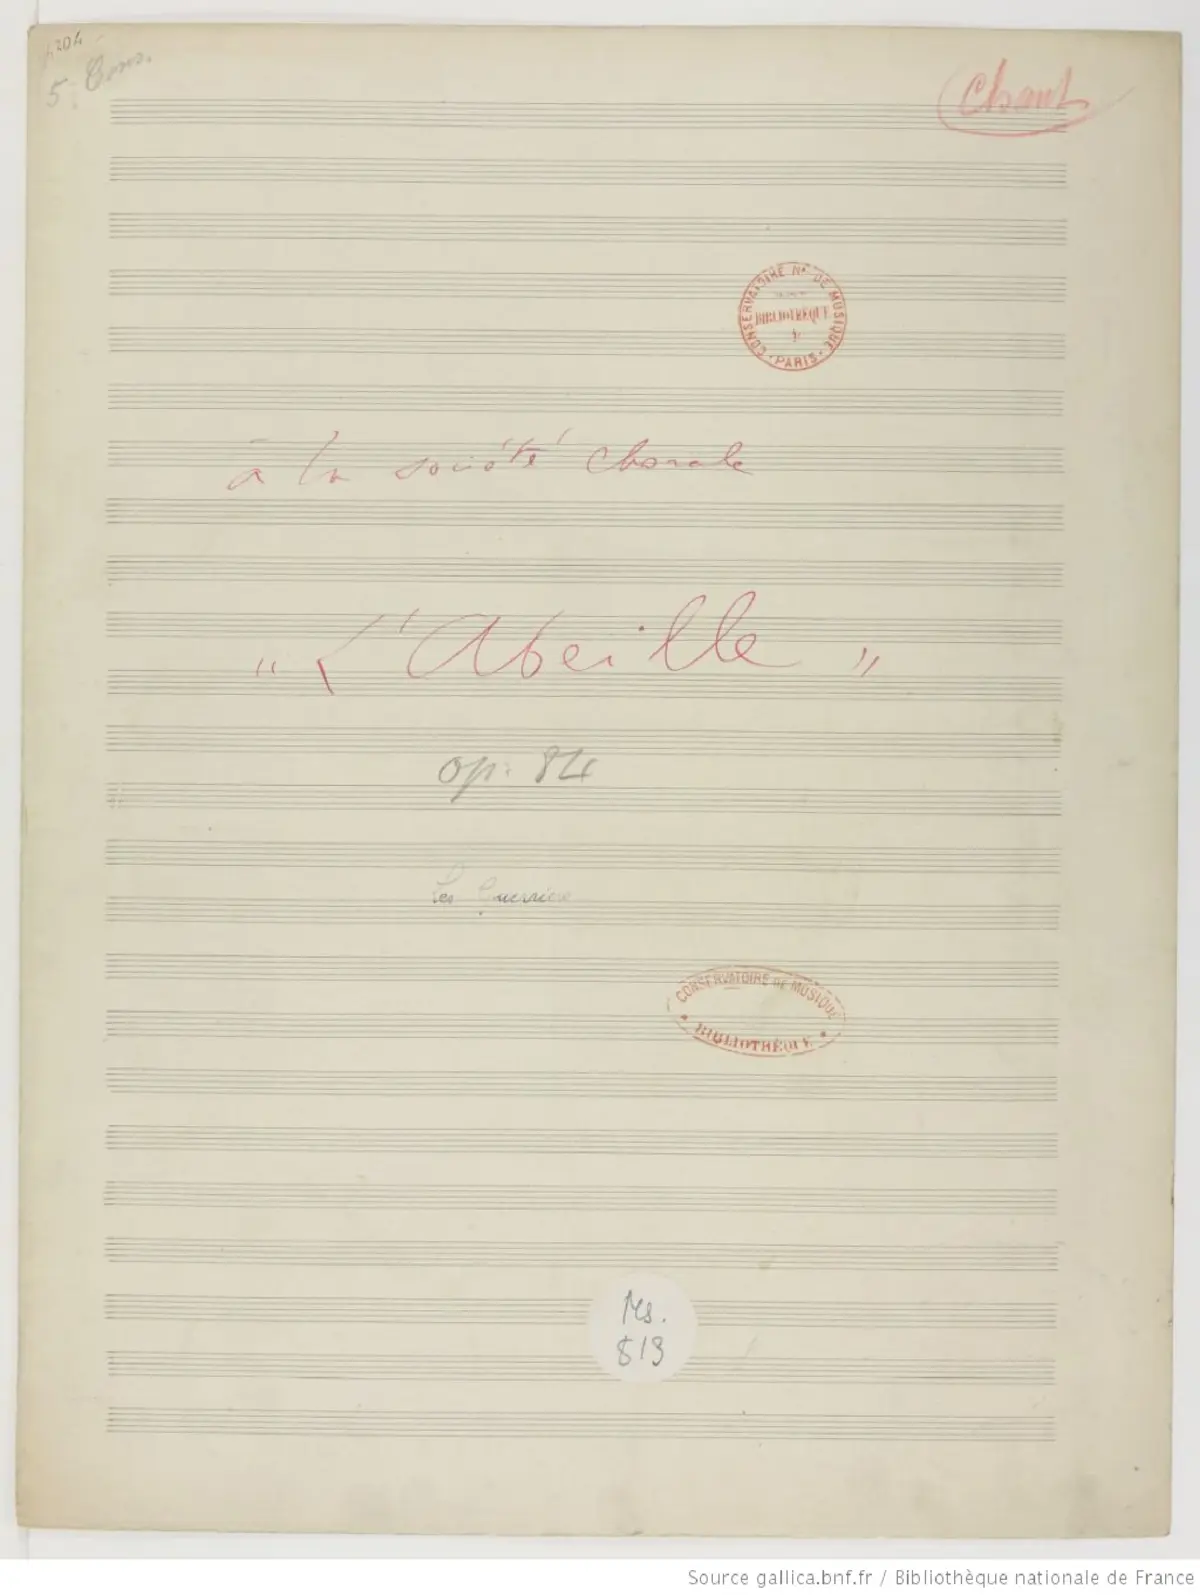 204
5
Chant
CONSERVATOIRE Nal DE MUSIQUE
BIBLIOTHÈQUE
PARIS
à la société chorale
"L'Abeille"
op: 84
Les Guerriers
CONSERVATOIRE DE MUSIQUE
BIBLIOTHÈQUE
Ms.
813
Source gallica.bnf.fr / Bibliothèque nationale de France